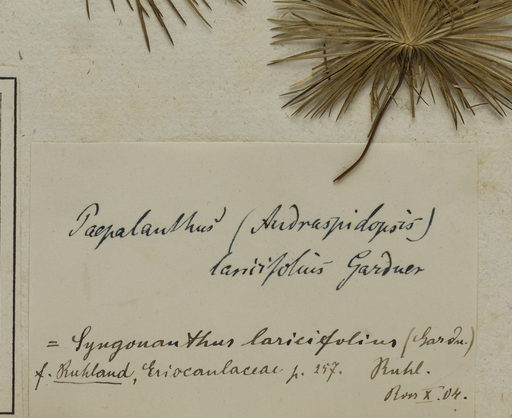 Paepalanthus (Andraspidopsis)
laricifolius Gardner
= Syngonanthus laricifolius (Gardn.)
f. Ruhland, Eriocaulaceae p. 257. Ruhl.
X. 04.